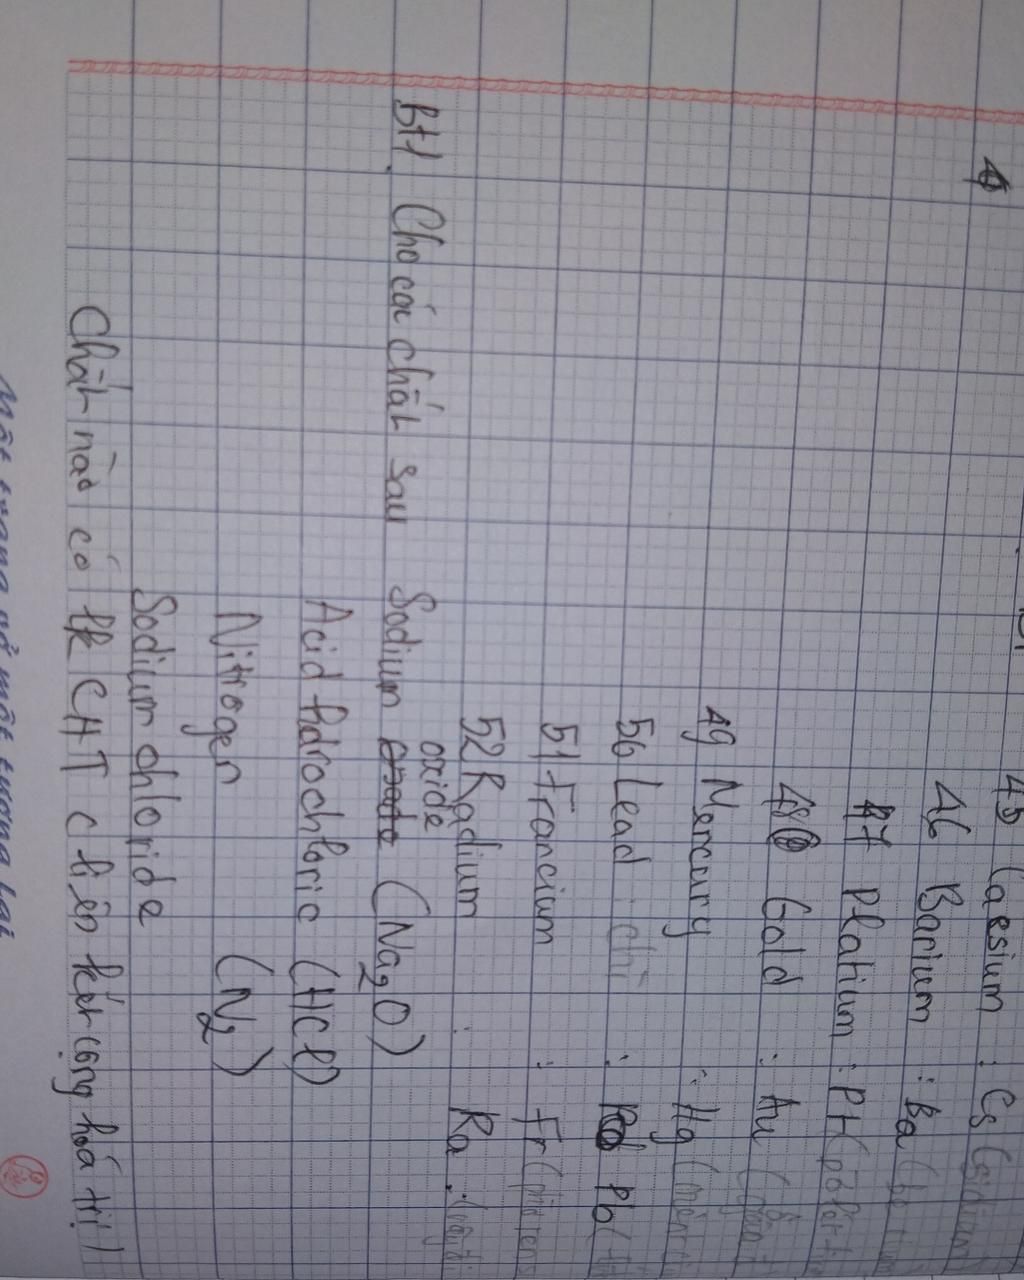 45 Caesium : Cs
46 Barium : Ba
47 Platium : Pt
48 Gold : Au
49 Mercury : Hg
50 Lead chì : Pb
51 Francium : Fr
52 Radium : Ra
oxide
Bt1. Cho các chất sau Sodium (Na2O)
Acid hdrochloric (HCl)
Nitrogen (N2)
Sodium chloride
Chất nào có lk CHT (liên kết cộng hoá trị)
Một trang vở một tương lai